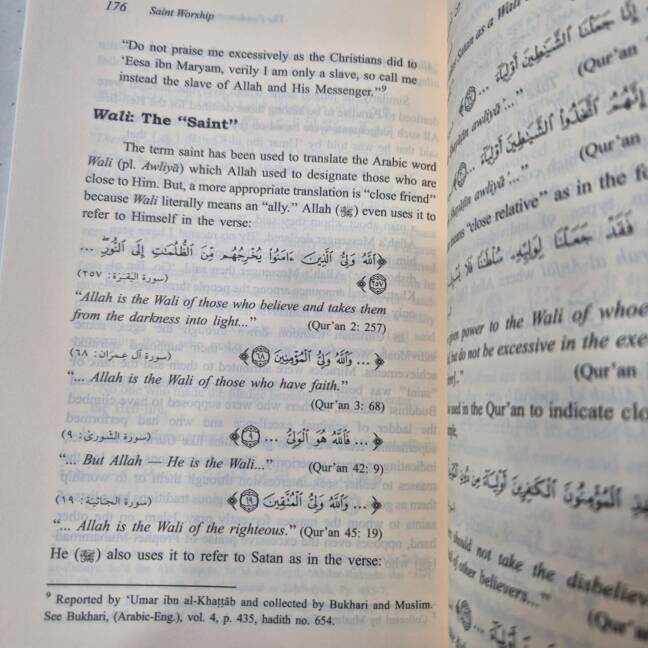 176
Saint Worship
"Do not praise me excessively as the Christians did to
'Eesa ibn Maryam, verily I am only a slave, so call me
instead the slave of Allah and His Messenger."⁹
Wali: The "Saint"
The term saint has been used to translate the Arabic word
Wali (pl. Awliyā) which Allah used to designate those who are
close to Him. But, a more appropriate translation is "close friend"
because Wali literally means an "ally." Allah (ﷻ) even uses it to
refer to Himself in the verse:
﴿ٱللَّهُ وَلِىُّ ٱلَّذِينَ ءَامَنُوا۟ يُخْرِجُهُم مِّنَ ٱلظُّلُمَـٰتِ إِلَى ٱلنُّورِ ۖ ...
﴿٢٥٧﴾
(سورة البقرة: ٢٥٧)
"Allah is the Wali of those who believe and takes them
from the darkness into light..." (Qur'an 2: 257)
﴿ ... وَٱللَّهُ وَلِىُّ ٱلْمُؤْمِنِينَ ٦٨ ﴾ (سورة آل عمران: ٦٨)
"... Allah is the Wali of those who have faith."
(Qur'an 3: 68)
﴿ ... فَٱللَّهُ هُوَ ٱلْوَلِىُّ ... ٩ ﴾ (سورة الشورىٰ: ٩)
"... But Allah — He is the Wali..." (Qur'an 42: 9)
﴿ ... وَٱللَّهُ وَلِىُّ ٱلْمُتَّقِينَ ١٩ ﴾ (سورة الجاثية: ١٩)
"... Allah is the Wali of the righteous." (Qur'an 45: 19)
He (ﷻ) also uses it to refer to Satan as in the verse:
⁹ Reported by 'Umar ibn al-Khaṭṭāb and collected by Bukhari and Muslim.
See Bukhari, (Arabic-Eng.), vol. 4, p. 435, hadith no. 654.
Satan as a Wali
إِنَّا جَعَلْنَا ٱلشَّيَـٰطِينَ أَوْلِيَآءَ ...
(Qur'an
awliyā'..."
إِنَّهُمُ ٱتَّخَذُوا۟ ٱلشَّيَـٰطِينَ أَوْلِيَآءَ ...
(Qur'an
awliyā'..."
means "close relative" as in the fo
فَقَدْ جَعَلْنَا لِوَلِيِّهِۦ سُلْطَـٰنًا فَلَا
given power to the Wali of whoe
but do not be excessive in the exe
(Qur'an
used in the Qur'an to indicate clo
ٱلْمُؤْمِنُونَ ٱلْكَـٰفِرِينَ أَوْلِيَآءَ مِن دُونِ
should not take the disbeliev
of other believers..."
(Qur'a